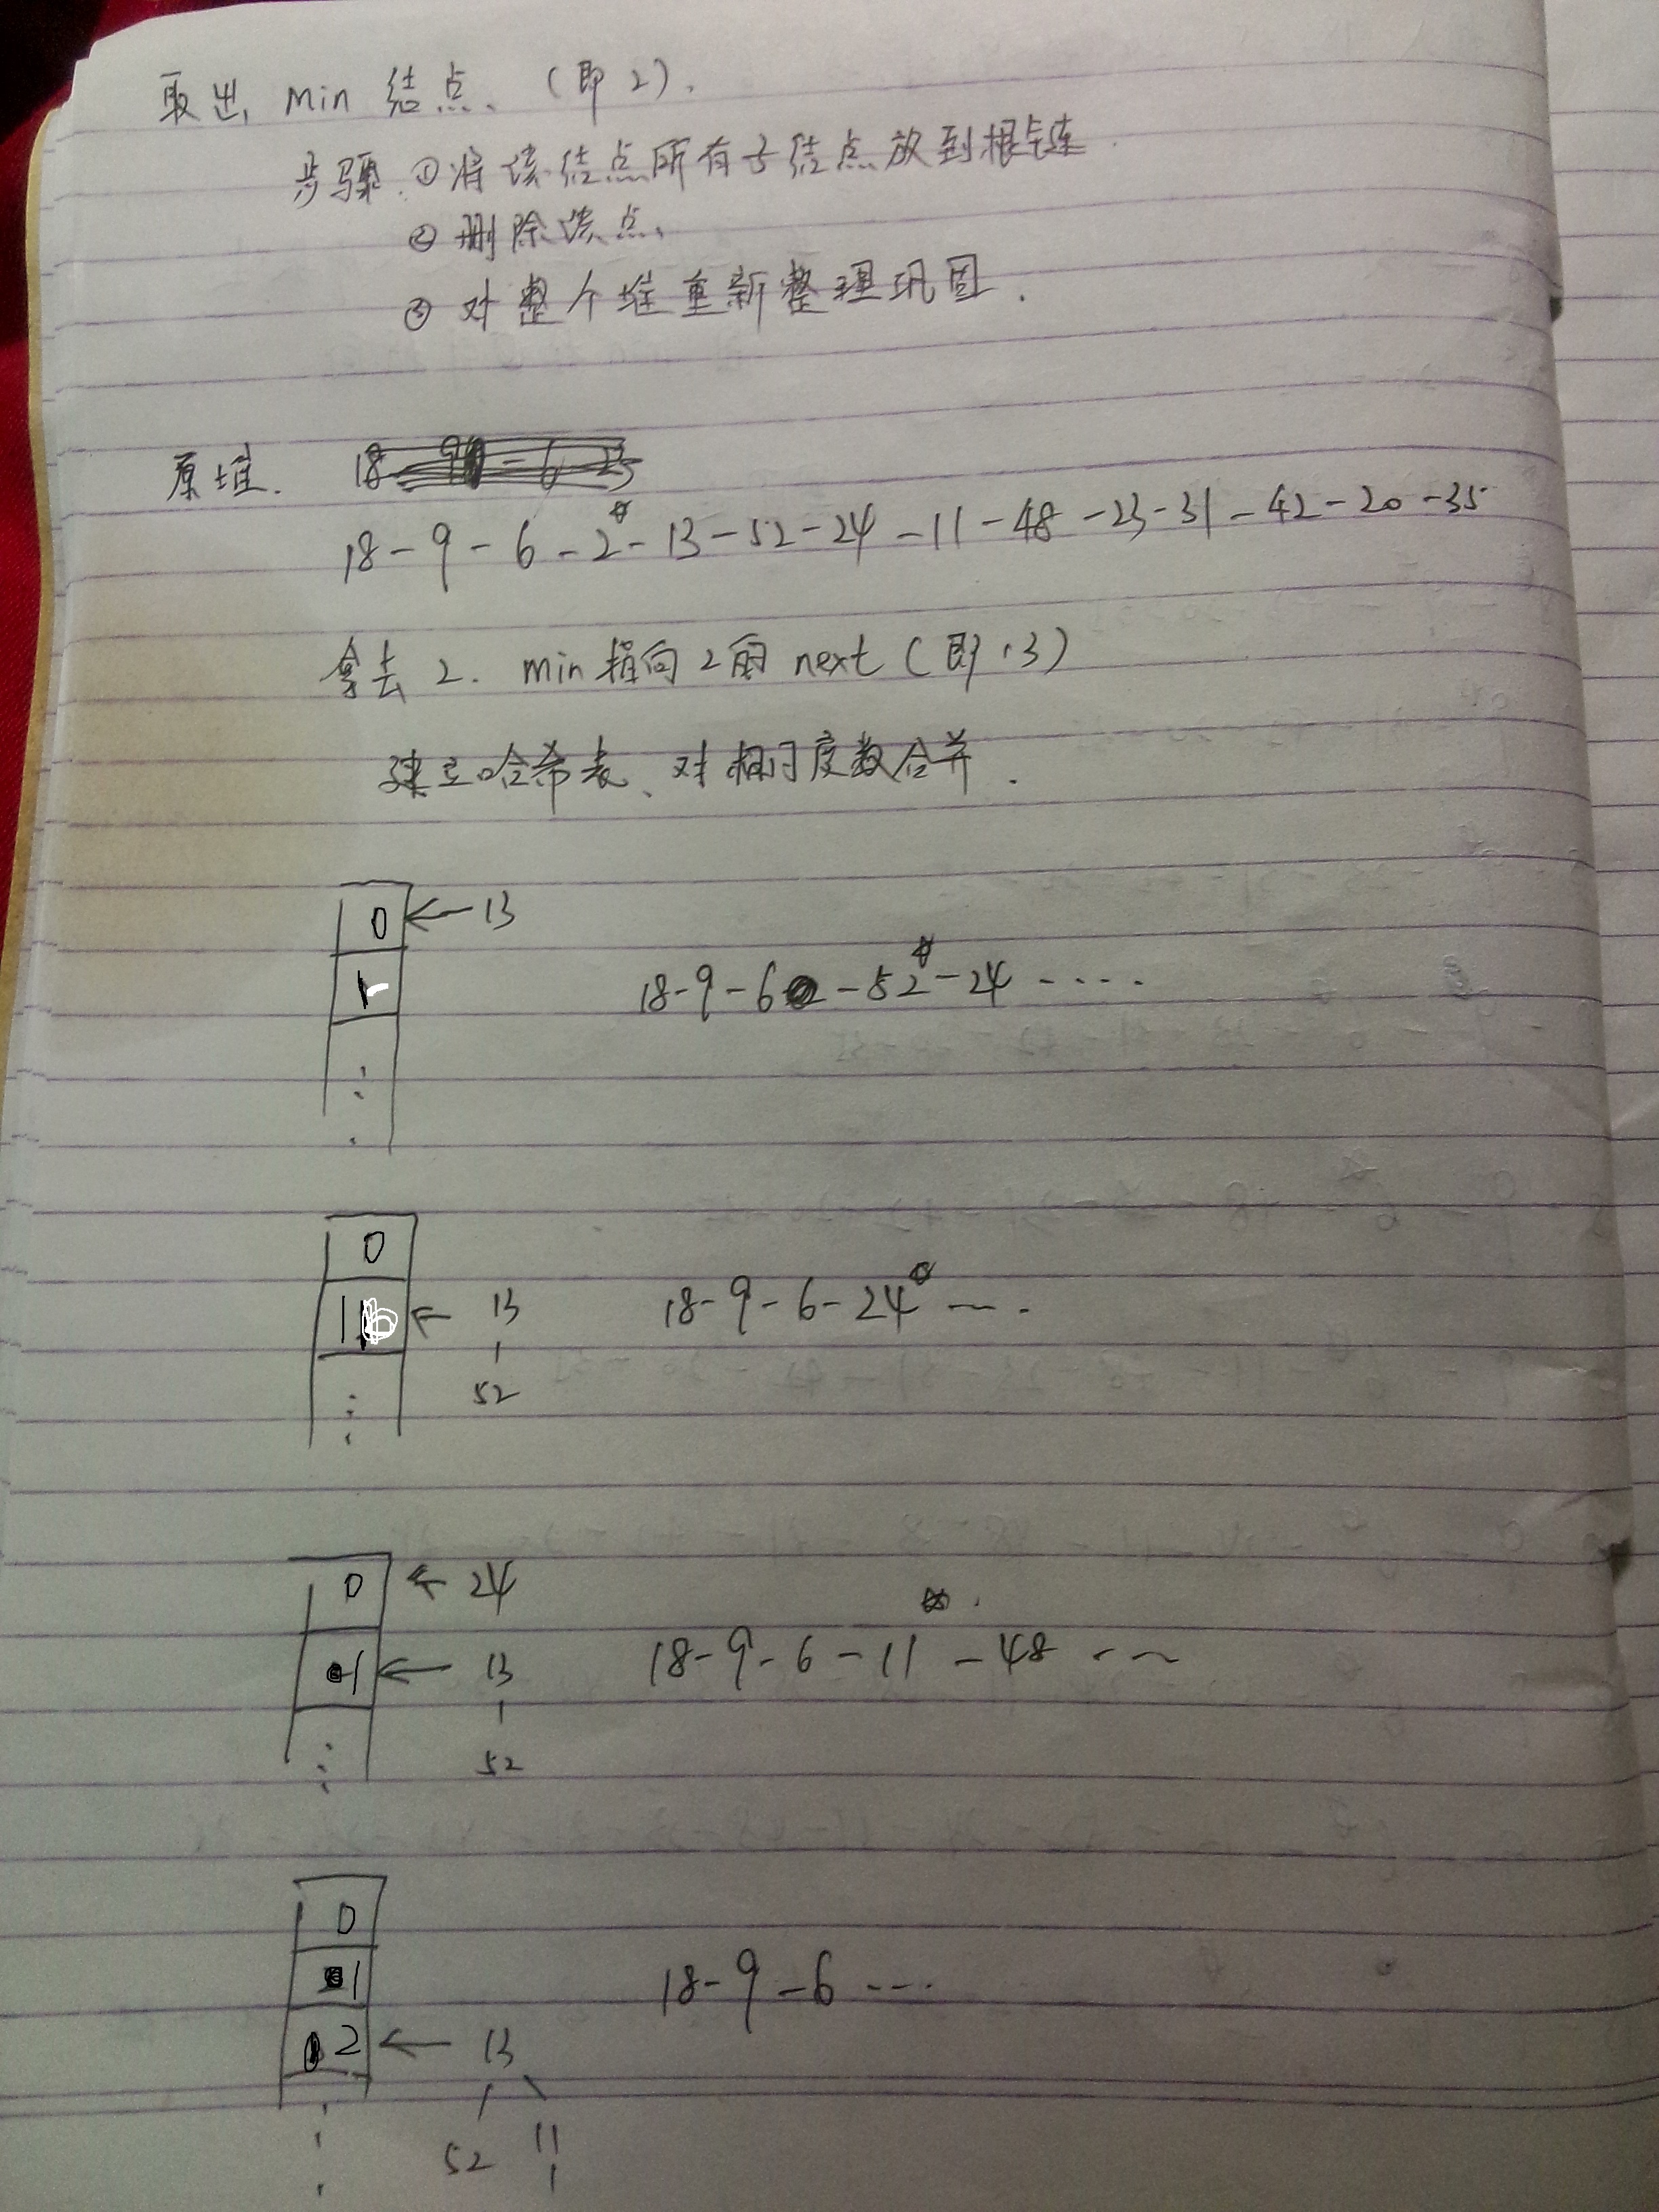 取出 min 结点、（即2）.
步骤.①将该结点所有子结点放到根链.
②删除该点、
③对整个堆重新整理巩固.
原堆. 18-9-6-23
18-9-6-2-13-52-24-11-48-23-31-42-20-35
拿去 2. min指向2的 next（即13）
建立哈希表、对相同度数合并.
0 ← 13
1
18-9-6-52-24-....
0
1 ← 13
18-9-6-24-...
52
0 ← 24
1 ← 13
18-9-6-11-48...
52
0
1
18-9-6...
2 ← 13
52 11